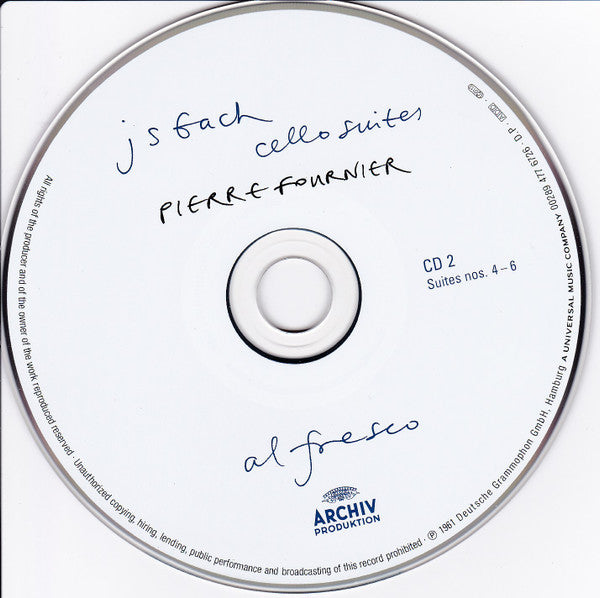 j s bach
cello suites
PIERRE FOURNIER
CD 2
Suites nos. 4–6
al fresco
ARCHIV
PRODUKTION
All rights of the producer and of the owner of the work reproduced reserved · Unauthorized copying, hiring, lending, public performance and broadcasting of this record prohibited · ℗ 1961 Deutsche Grammophon GmbH, Hamburg A UNIVERSAL MUSIC COMPANY 00289 477 6726 · D.P.